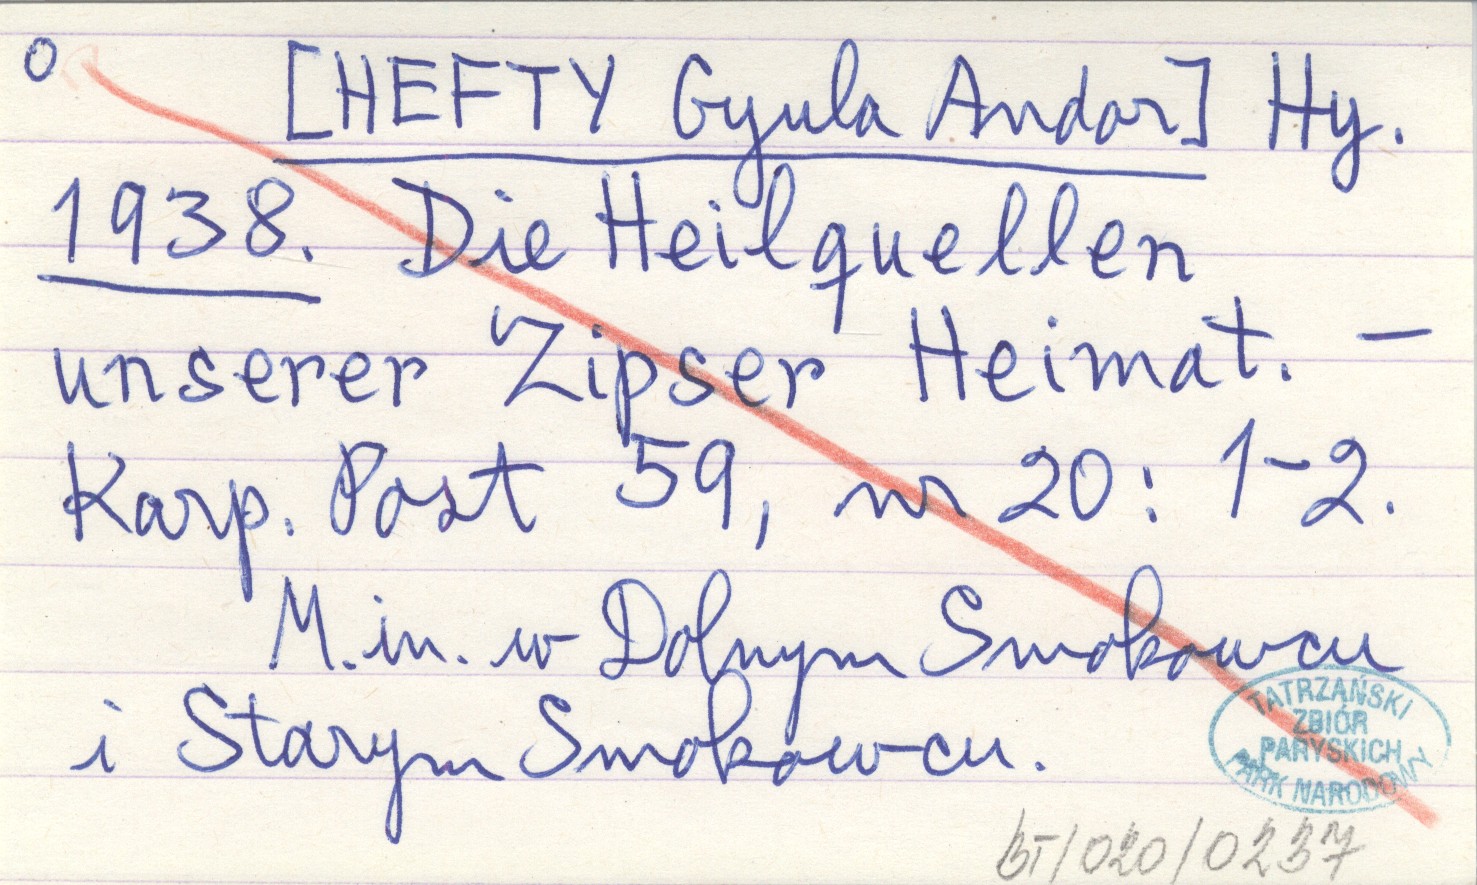 o [HEFTY Gyula Andor] Hy.
1938. Die Heilquellen
unserer Zipser Heimat. –
Karp. Post 59, nr 20: 1-2.
M.in. w Dolnym Smokowcu
i Starym Smokowcu.
TATRZAŃSKI
ZBIÓR
PARYSKICH
PARK NARODOWY
BT/020/0237